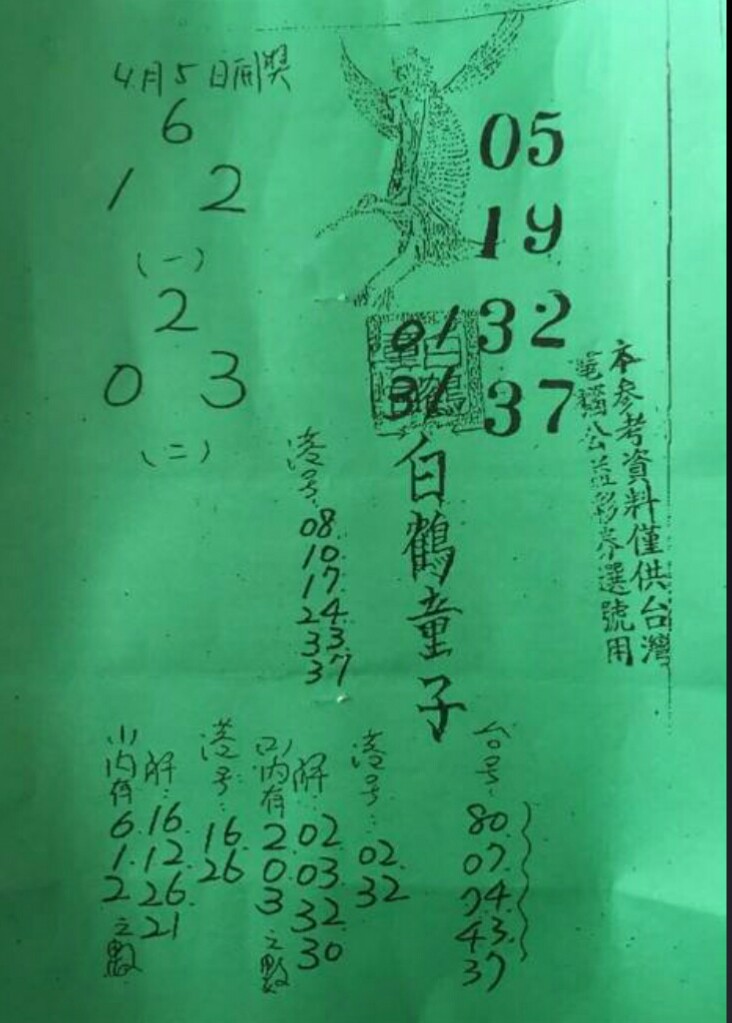 4月5日開獎
6
1 2
(一)
2
0 3
(二)
05
19
32
37
01
31
白鶴童子
本參考資料僅供台灣
電腦公益彩券選號用
港号:
08
10
17
24
33
37
台号:
80
07
74
43
37
港号:
02
32
解:
02
03
32
30
(二)內有
2
0
3
之數
港号:
16
26
解:
16
12
26
21
(一)內有
6
1
2
之數